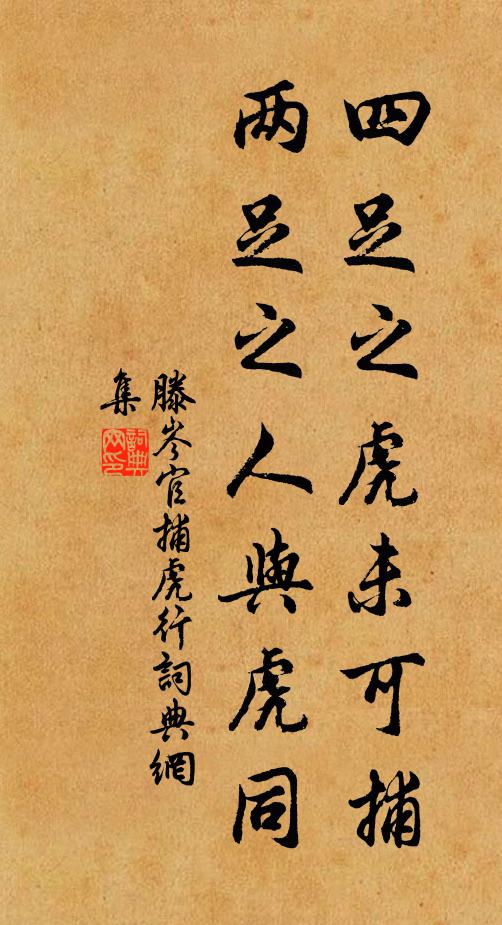 四足之虎未可捕
两足之人與虎同
滕岑官捕虎行詞典網
集
詞典网印